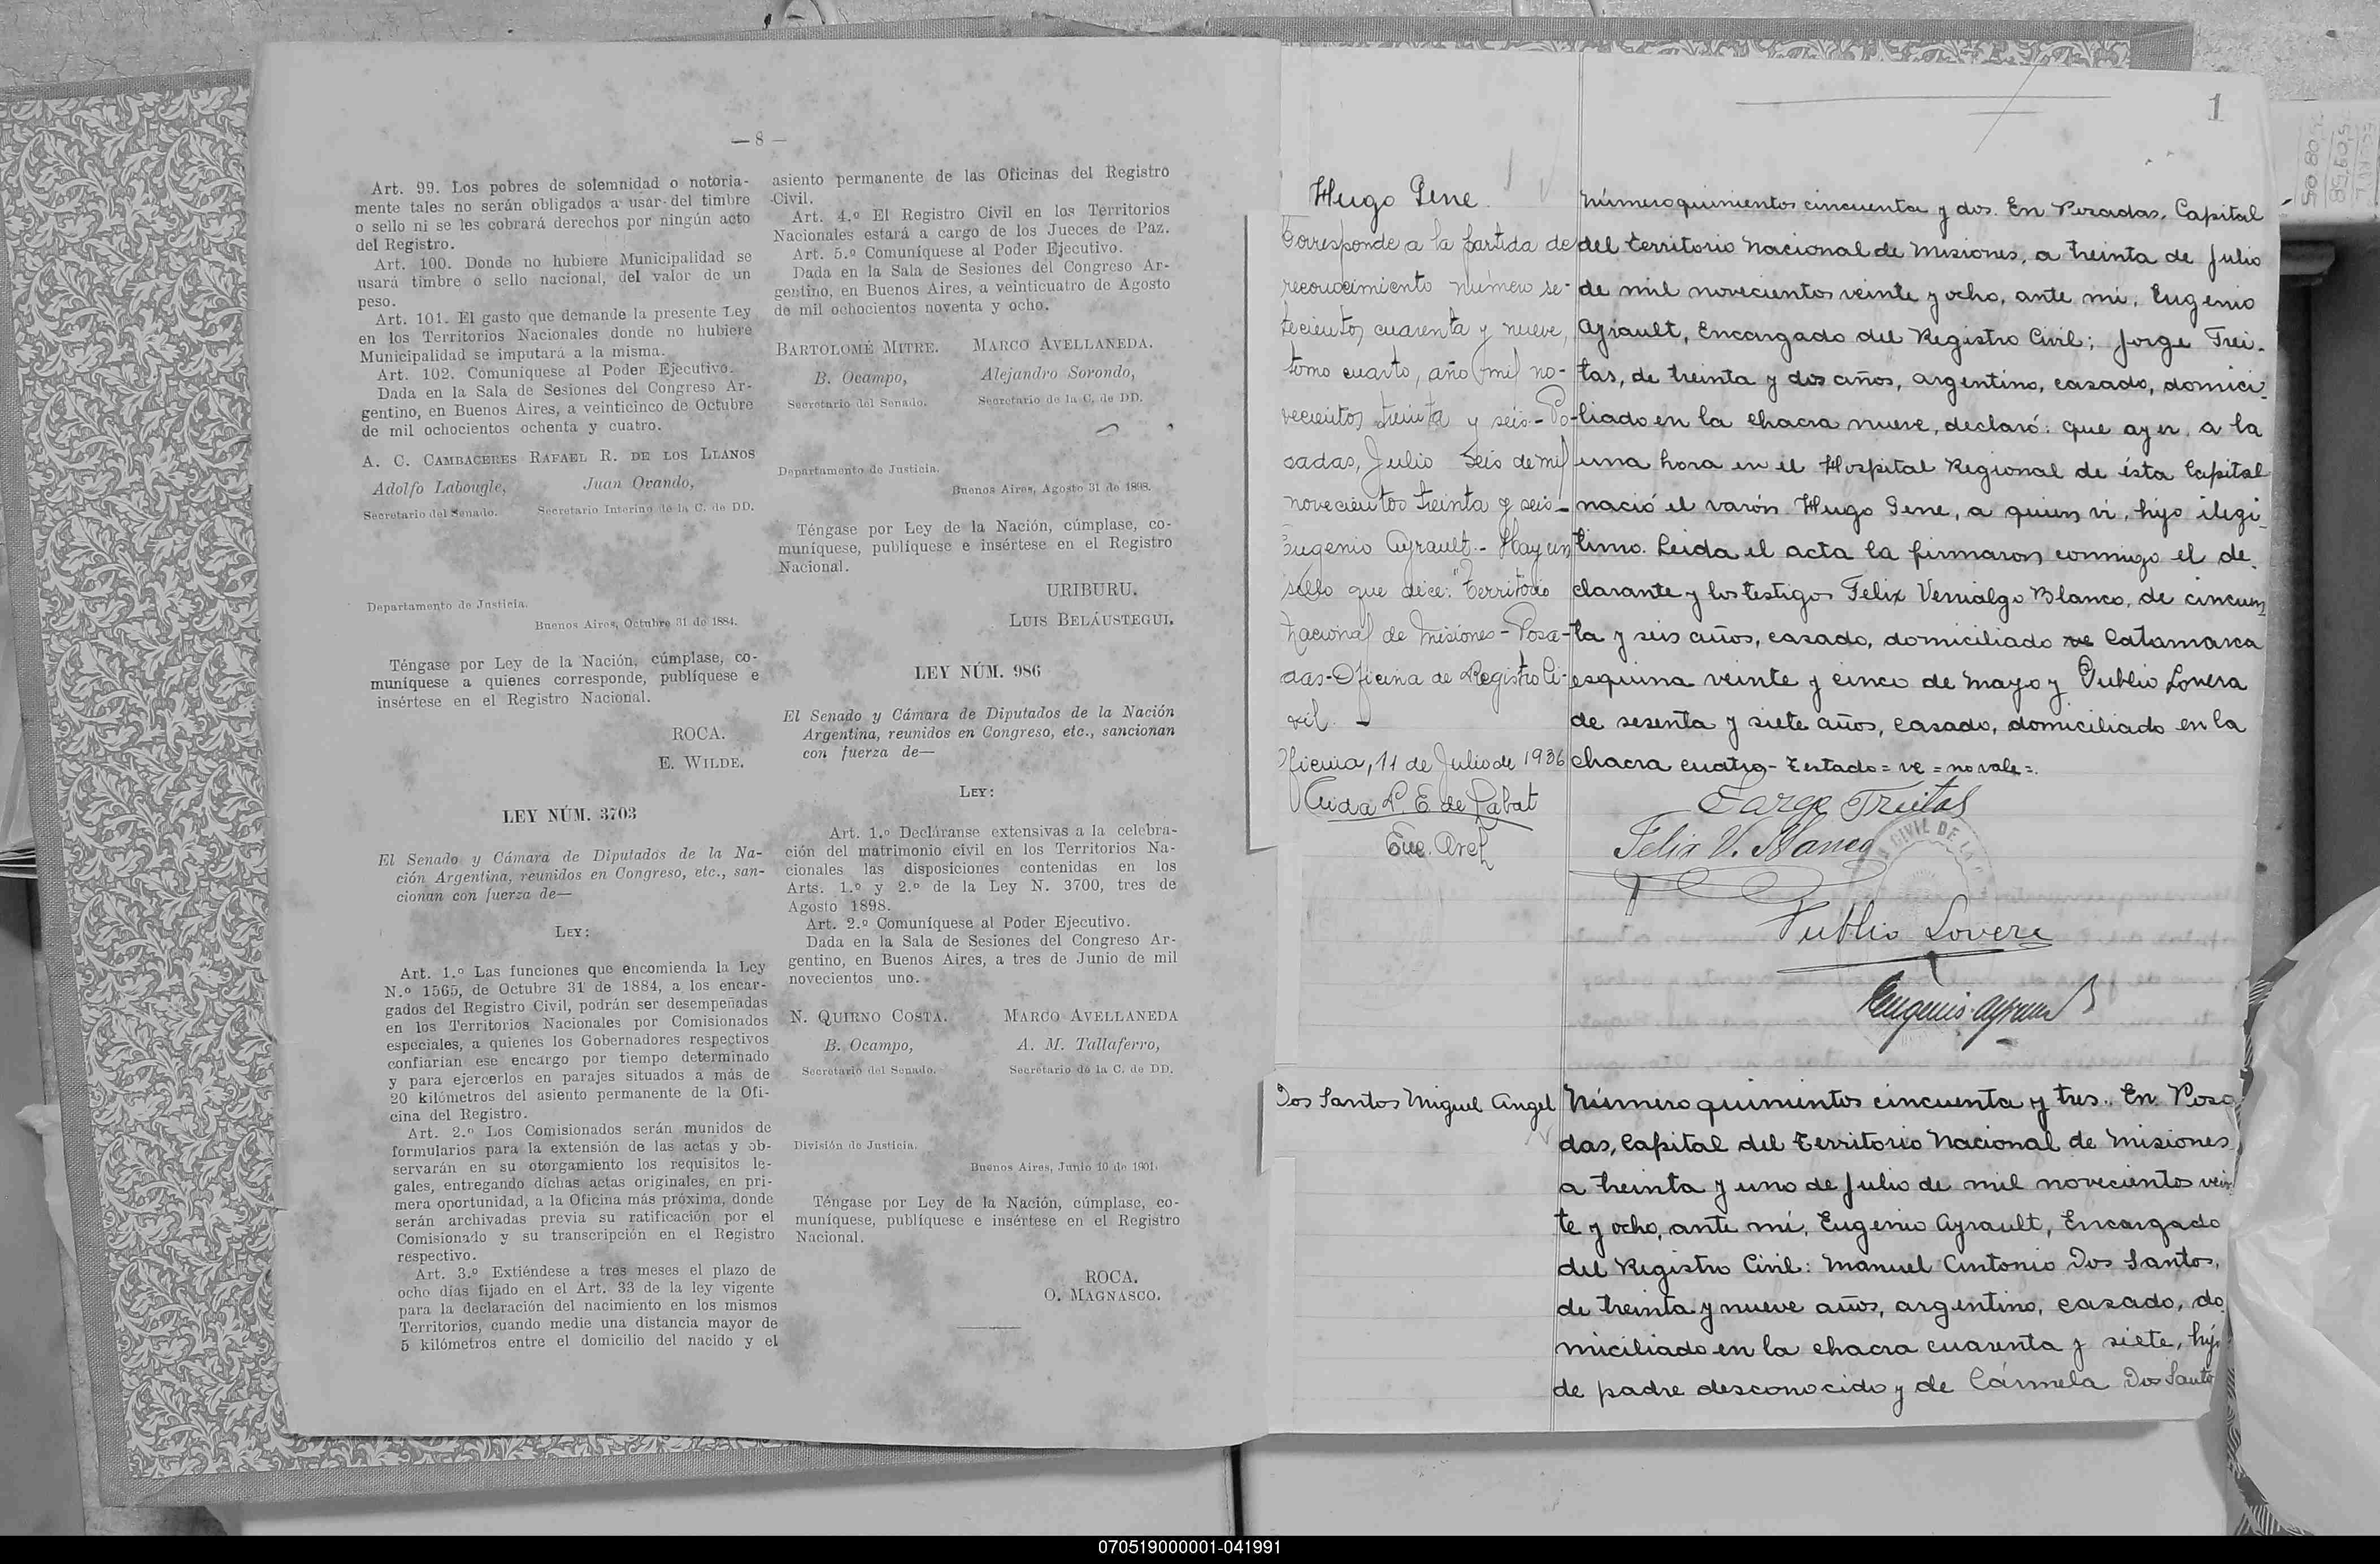 — 8 —
Art. 99. Los pobres de solemnidad o notoria-
mente tales no serán obligados a usar del timbre
o sello ni se les cobrará derechos por ningún acto
del Registro.
Art. 100. Donde no hubiere Municipalidad se
usará timbre o sello nacional, del valor de un
peso.
Art. 101. El gasto que demande la presente Ley
en los Territorios Nacionales donde no hubiere
Municipalidad se imputará a la misma.
Art. 102. Comuníquese al Poder Ejecutivo.
Dada en la Sala de Sesiones del Congreso Ar-
gentino, en Buenos Aires, a veinticinco de Octubre
de mil ochocientos ochenta y cuatro.
A. C. CAMBACERES RAFAEL R. DE LOS LLANOS
Adolfo Labougle, Juan Ovando,
Secretario del Senado. Secretario Interino de la C. de DD.
Departamento de Justicia.
Buenos Aires, Octubre 31 de 1884.
Téngase por Ley de la Nación, cúmplase, co-
muníquese a quienes corresponde, publíquese e
insértese en el Registro Nacional.
ROCA.
E. WILDE.
LEY NÚM. 3703
El Senado y Cámara de Diputados de la Na-
ción Argentina, reunidos en Congreso, etc., san-
cionan con fuerza de—
LEY:
Art. 1.º Las funciones que encomienda la Ley
N.º 1565, de Octubre 31 de 1884, a los encar-
gados del Registro Civil, podrán ser desempeñadas
en los Territorios Nacionales por Comisionados
especiales, a quienes los Gobernadores respectivos
confiarían ese encargo por tiempo determinado
y para ejercerlos en parajes situados a más de
20 kilómetros del asiento permanente de la Ofi-
cina del Registro.
Art. 2.º Los Comisionados serán munidos de
formularios para la extensión de las actas y ob-
servarán en su otorgamiento los requisitos le-
gales, entregando dichas actas originales, en pri-
mera oportunidad, a la Oficina más próxima, donde
serán archivadas previa su ratificación por el
Comisionado y su transcripción en el Registro
respectivo.
Art. 3.º Extiéndese a tres meses el plazo de
ocho días fijado en el Art. 33 de la ley vigente
para la declaración del nacimiento en los mismos
Territorios, cuando medie una distancia mayor de
5 kilómetros entre el domicilio del nacido y el
asiento permanente de las Oficinas del Registro
Civil.
Art. 4.º El Registro Civil en los Territorios
Nacionales estará a cargo de los Jueces de Paz.
Art. 5.º Comuníquese al Poder Ejecutivo.
Dada en la Sala de Sesiones del Congreso Ar-
gentino, en Buenos Aires, a veinticuatro de Agosto
de mil ochocientos noventa y ocho.
BARTOLOMÉ MITRE. MARCO AVELLANEDA.
B. Ocampo, Alejandro Sorondo,
Secretario del Senado. Secretario de la C. de DD.
Departamento de Justicia.
Buenos Aires, Agosto 31 de 1898.
Téngase por Ley de la Nación, cúmplase, co-
muníquese, publíquese e insértese en el Registro
Nacional.
URIBURU.
LUIS BELÁUSTEGUI.
LEY NÚM. 986
El Senado y Cámara de Diputados de la Nación
Argentina, reunidos en Congreso, etc., sancionan
con fuerza de—
LEY:
Art. 1.º Decláranse extensivas a la celebra-
ción del matrimonio civil en los Territorios Na-
cionales las disposiciones contenidas en los
Arts. 1.º y 2.º de la Ley N. 3700, tres de
Agosto 1898.
Art. 2.º Comuníquese al Poder Ejecutivo.
Dada en la Sala de Sesiones del Congreso Ar-
gentino, en Buenos Aires, a tres de Junio de mil
novecientos uno.
N. QUIRNO COSTA. MARCO AVELLANEDA
B. Ocampo, A. M. Tallaferro,
Secretario del Senado. Secretario de la C. de DD.
División de Justicia.
Buenos Aires, Junio 10 de 1901.
Téngase por Ley de la Nación, cúmplase, co-
muníquese, publíquese e insértese en el Registro
Nacional.
ROCA.
O. MAGNASCO.
1
Hugo Gene.
Corresponde a la partida de
reconocimiento número se-
tecientos cuarenta y nueve,
tomo cuarto, año mil no-
vecientos treinta y seis - Po-
sadas, Julio seis de mil
novecientos treinta y seis -
Eugenio Ayrault. - Hay un
sello que dice: "Territorio
Nacional de Misiones - Posa-
das - Oficina de Registro Ci-
vil. -
Oficina, 11 de Julio de 1936
Número quinientos cincuenta y dos. En Posadas, Capital
del territorio Nacional de Misiones, a treinta de Julio
de mil novecientos veinte y ocho, ante mí, Eugenio
Ayrault, Encargado del Registro Civil; Jorge Frei-
tas, de treinta y dos años, argentino, casado, domici-
liado en la chacra nueve, declaró: que ayer a la
una hora en el Hospital Regional de ésta Capital
nació el varón Hugo Gene, a quien vi, hijo ilegi-
timo. Leida el acta la firmaron conmigo el de-
clarante y los testigos Felix Verrialgo Blanco, de cincuen
ta y seis años, casado, domiciliado ve Catamarca
esquina veinte y cinco de Mayo y Publio Lovera
de sesenta y siete años, casado, domiciliado en la
chacra cuatro - Testado = ve = no vale =.
Jorge Freitas
Felix V. Blanco
CIVIL DE LA
Publio Lovera
Eugenio Ayrault
Dos Santos Miguel Angel
Número quinientos cincuenta y tres. En Posa
das, Capital del Territorio Nacional de Misiones
a treinta y uno de Julio de mil novecientos vein
te y ocho, ante mí, Eugenio Ayrault, Encargado
del Registro Civil: Manuel Antonio Dos Santos,
de treinta y nueve años, argentino, casado, do
miciliado en la chacra cuarenta y siete, hijo
de padre desconocido y de Cármela Dos Santo
070519000001-041991